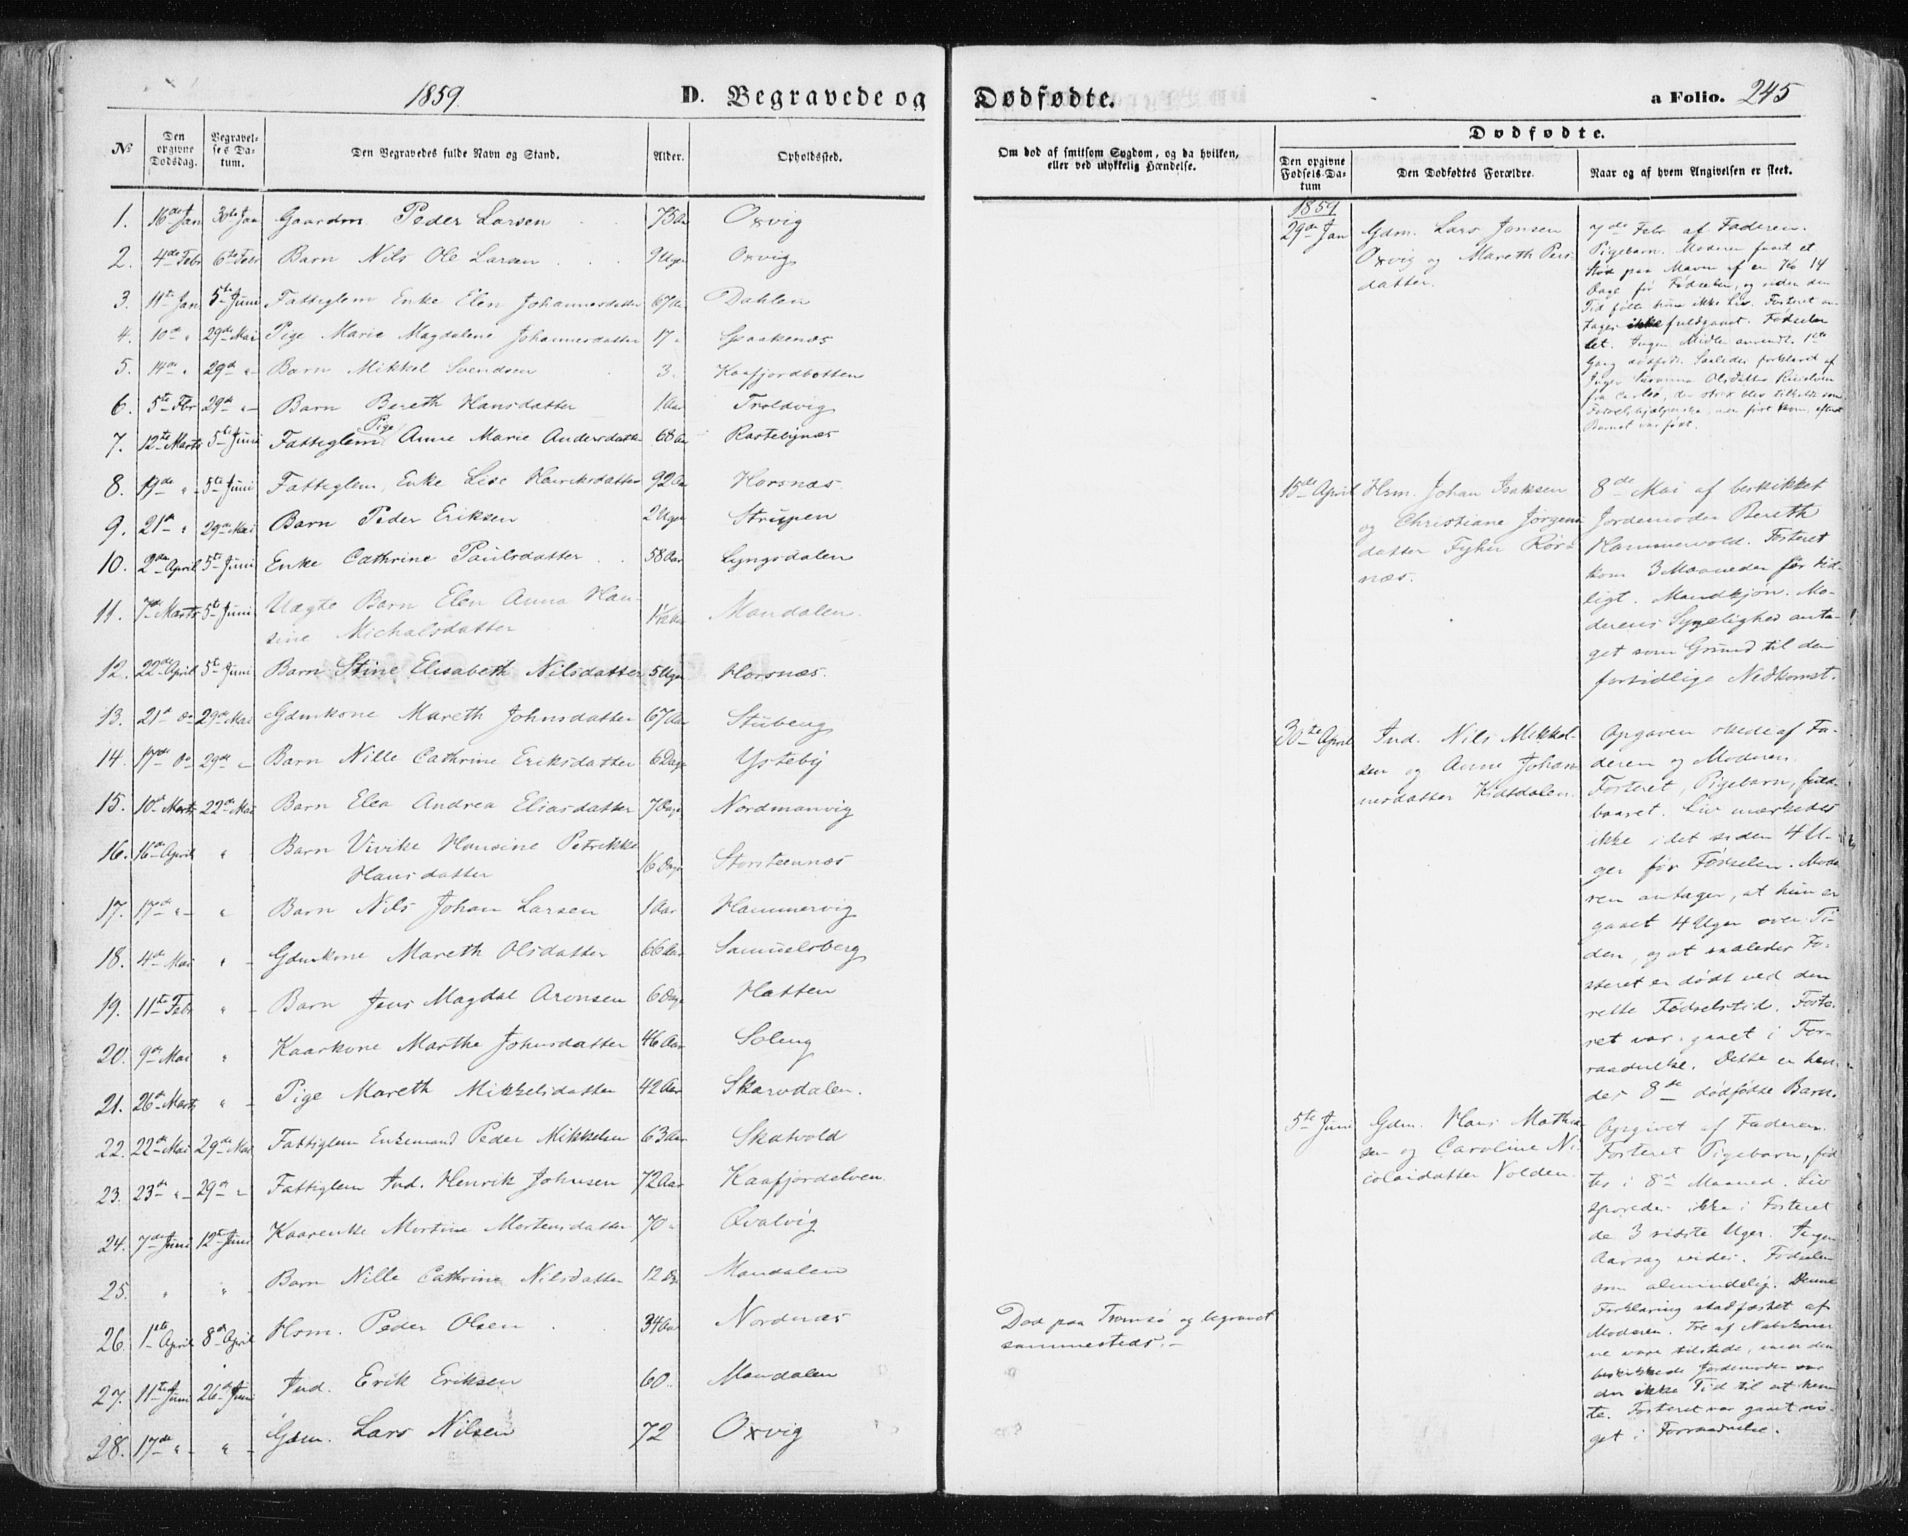 1859
D. Begravede og
Dødfødte.
a Folio. 245
No
Den opgivne Dødsdag.
Begravelses Datum.
Den Begravedes fulde Navn og Stand.
Alder.
Opholdssted.
Om død af smitsom Sygdom, og da hvilken, eller ved ulykkelig Hændelse.
Dødfødte.
Den opgivne Fødsels-Datum
Den Dødfødtes Forældre.
Naar og af hvem Angivelsen er skeet.
1. 16de Jan 30te Jan Gaardm Peder Larsen 75 Aar Oxvig
2. 4de Febr 6te Febr Barn Nils Ole Larsen 9 Uger Oxvig
3. 11te Jan 5te Juni Fattiglem Enke Elen Johannesdatter 67 Aar Dahlen
4. 10de " 29de Mai Pige Marie Magdalene Johannesdatter 17 " Spaakenæs
5. 14de " 29de " Barn Mikkel Svendsen 3. Kaafjordbotten
6. 5te Fbr 29de " Barn Bereth Hansdatter 1 Aar Troldvig
7. 12te Marts 5te Juni Fattiglem Pige Anne Marie Andersdatter 68 Aar Rastebynæs
8. 19de " 5te Juni Fattiglem, Enke Lise Henriksdatter 92 Aar Horsnæs
9. 21de " 29de Mai Barn Peder Eriksen 2 Uger Strupen
10. 2den April 5te Juni Enke Cathrine Paulsdatter 58 Aar Lyngsdalen
11. 7de Marts 5te Juni Uægte Barn Elen Anna Han-
sine Michalsdatter Mandalen
12. 22de April 5te Juni Barn Stine Elisabeth Nilsdatter 5 Uger Horsnæs.
13. 21de Do 29de Mai Gdmkone Mareth Johnsdatter 67 Aar Stubeng
14. 17de Do 29de " Barn Nille Cathrine Eriksdatter 6 Dage Ysteby
15. 10de Marts 22de Mai Barn Elea Andrea Eliasdatter 7 Dage Nordmanvig
16. 16de April " Barn Vivike Hansine Petrikke
Hansdatter 16 Dage Storsteennæs
17. 17de " " Barn Nils Johan Larsen 1 Aar Hammervig
18. 4de Mai " Gdmkone Mareth Olsdatter 66 Aar Samuelsberg
19. 11te Febr " Barn Jens Magdal Aronsen 6 Dage Hatten
20. 9de Mai " Kaarkone Marthe Johnsdatter 46 Aar Soleng
21. 26de Marts " Pige Mareth Mikkelsdatter 42 Aar Skarvdalen.
22. 22de Mai 29de Mai Fattiglem Enkemand Peder Mikkelsen 63 Aar Skatvold
23. 23de " 29de " Fattiglem Ind. Henrik Johnsen 72 Aar Kaafjordelven.
24. 7de Juni 12te Juni Kaarenke Mortine Mortensdatter 70 " Qvalvig
25. " " Barn Nille Cathrine Nilsdatter 12 Dg Mandalen
26. 1ste April 8de April Hsm. Peder Olsen 34 Aar Nordnæs Død paa Tromsø og begravet
sammesteds.
27. 11te Juni 26de Juni Ind. Erik Eriksen 60. Mandalen
28. 17de " " Gdm. Lars Nilsen 72 Oxvig
1859
29de Jan
Gdm. Lars Jonsen
Oxvig og Mareth Pers-
datter.
7de Febr af Faderen.
Pigebarn. Moderen faaet et
Stød paa Maven af en Ko 14
Dage før Fødselen, og siden den
Tid følte hun ikke Liv. Fosteret an-
tages ikke fuldgaaet. Fødselen
let. Ingen Midler anvendt.
Inger Susanna Olsdatter
Barnet var født.
15de April
Hsm. Johan Isaksen
og Christiane Jørgens-
datter Fyhn Rør-
næs.
8de Mai af beskikket
Jordemoder Bereth
Hammervold. Fosteret
kom 3 Maaneder for tid-
ligt. Mandkjøn. Mo-
derens Sygelighed anta-
get som Grund til den
fortidlige Nedkomst.
30te April
Ind. Nils Mikkel-
sen og Anne Johan-
nesdatter Kidtdalen.
Opgaven skede af Fa-
deren og Moderen.
Fosteret, Pigebarn, fuld-
baaret. Liv mærkedes
ikke i det siden 4 U-
ger før Fødselen. Mode-
ren antager, at hun er
gaaet 4 Uger over Ti-
den, og at saaledes Fo-
steret er dødt ved den
rette Fødselstid. Foste-
ret var gaaet i For-
raadnelse. Dette er hen-
des 8de dødfødte Barn.
5te Juni
Gdm. Hans Mathi-
sen og Caroline Ni-
colaidatter Volden.
Opgivet af Faderen.
Fosteret Pigebarn, fød-
tes i 8de Maaned. Liv
sporedes ikke i Fosteret
de 3 sidste Uger. Ingen
Aarsag vides. Fødselen
som almindelig. Denne
Forklaring stadfæstet af
Moderen. Tre af Nabokoner-
ne vare tilstede, men den
beskikkede Jordemoder var
der ikke Tid til at hen-
te. Fosteret var gaaet no-
get i Forraadnelse.